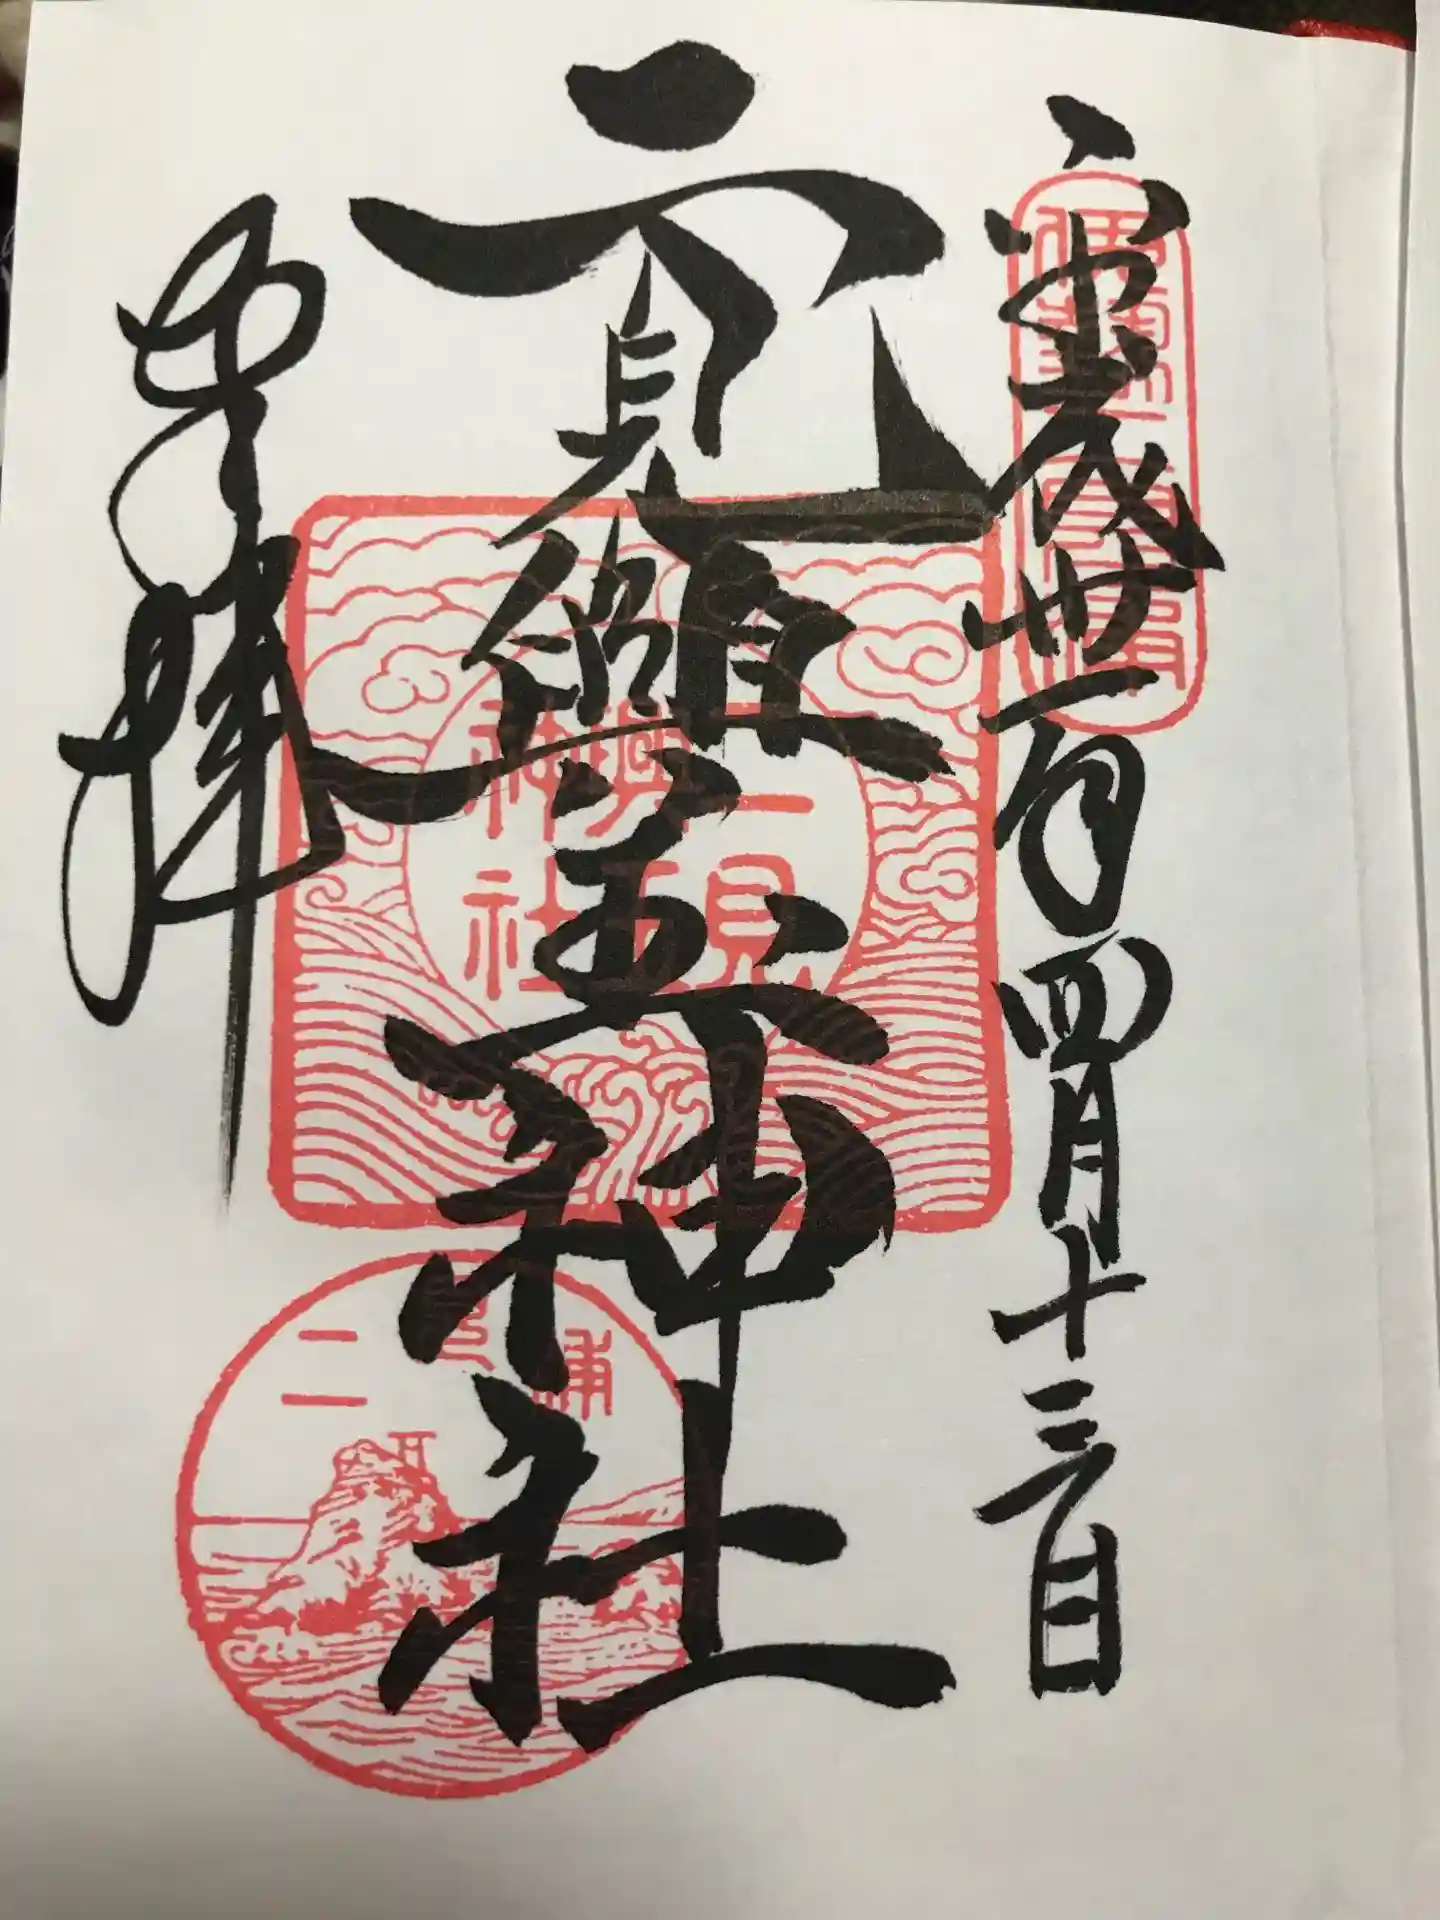 平成卅一年四月十三日
二見興玉神社
奉拝
二見
興玉
神社
二見浦